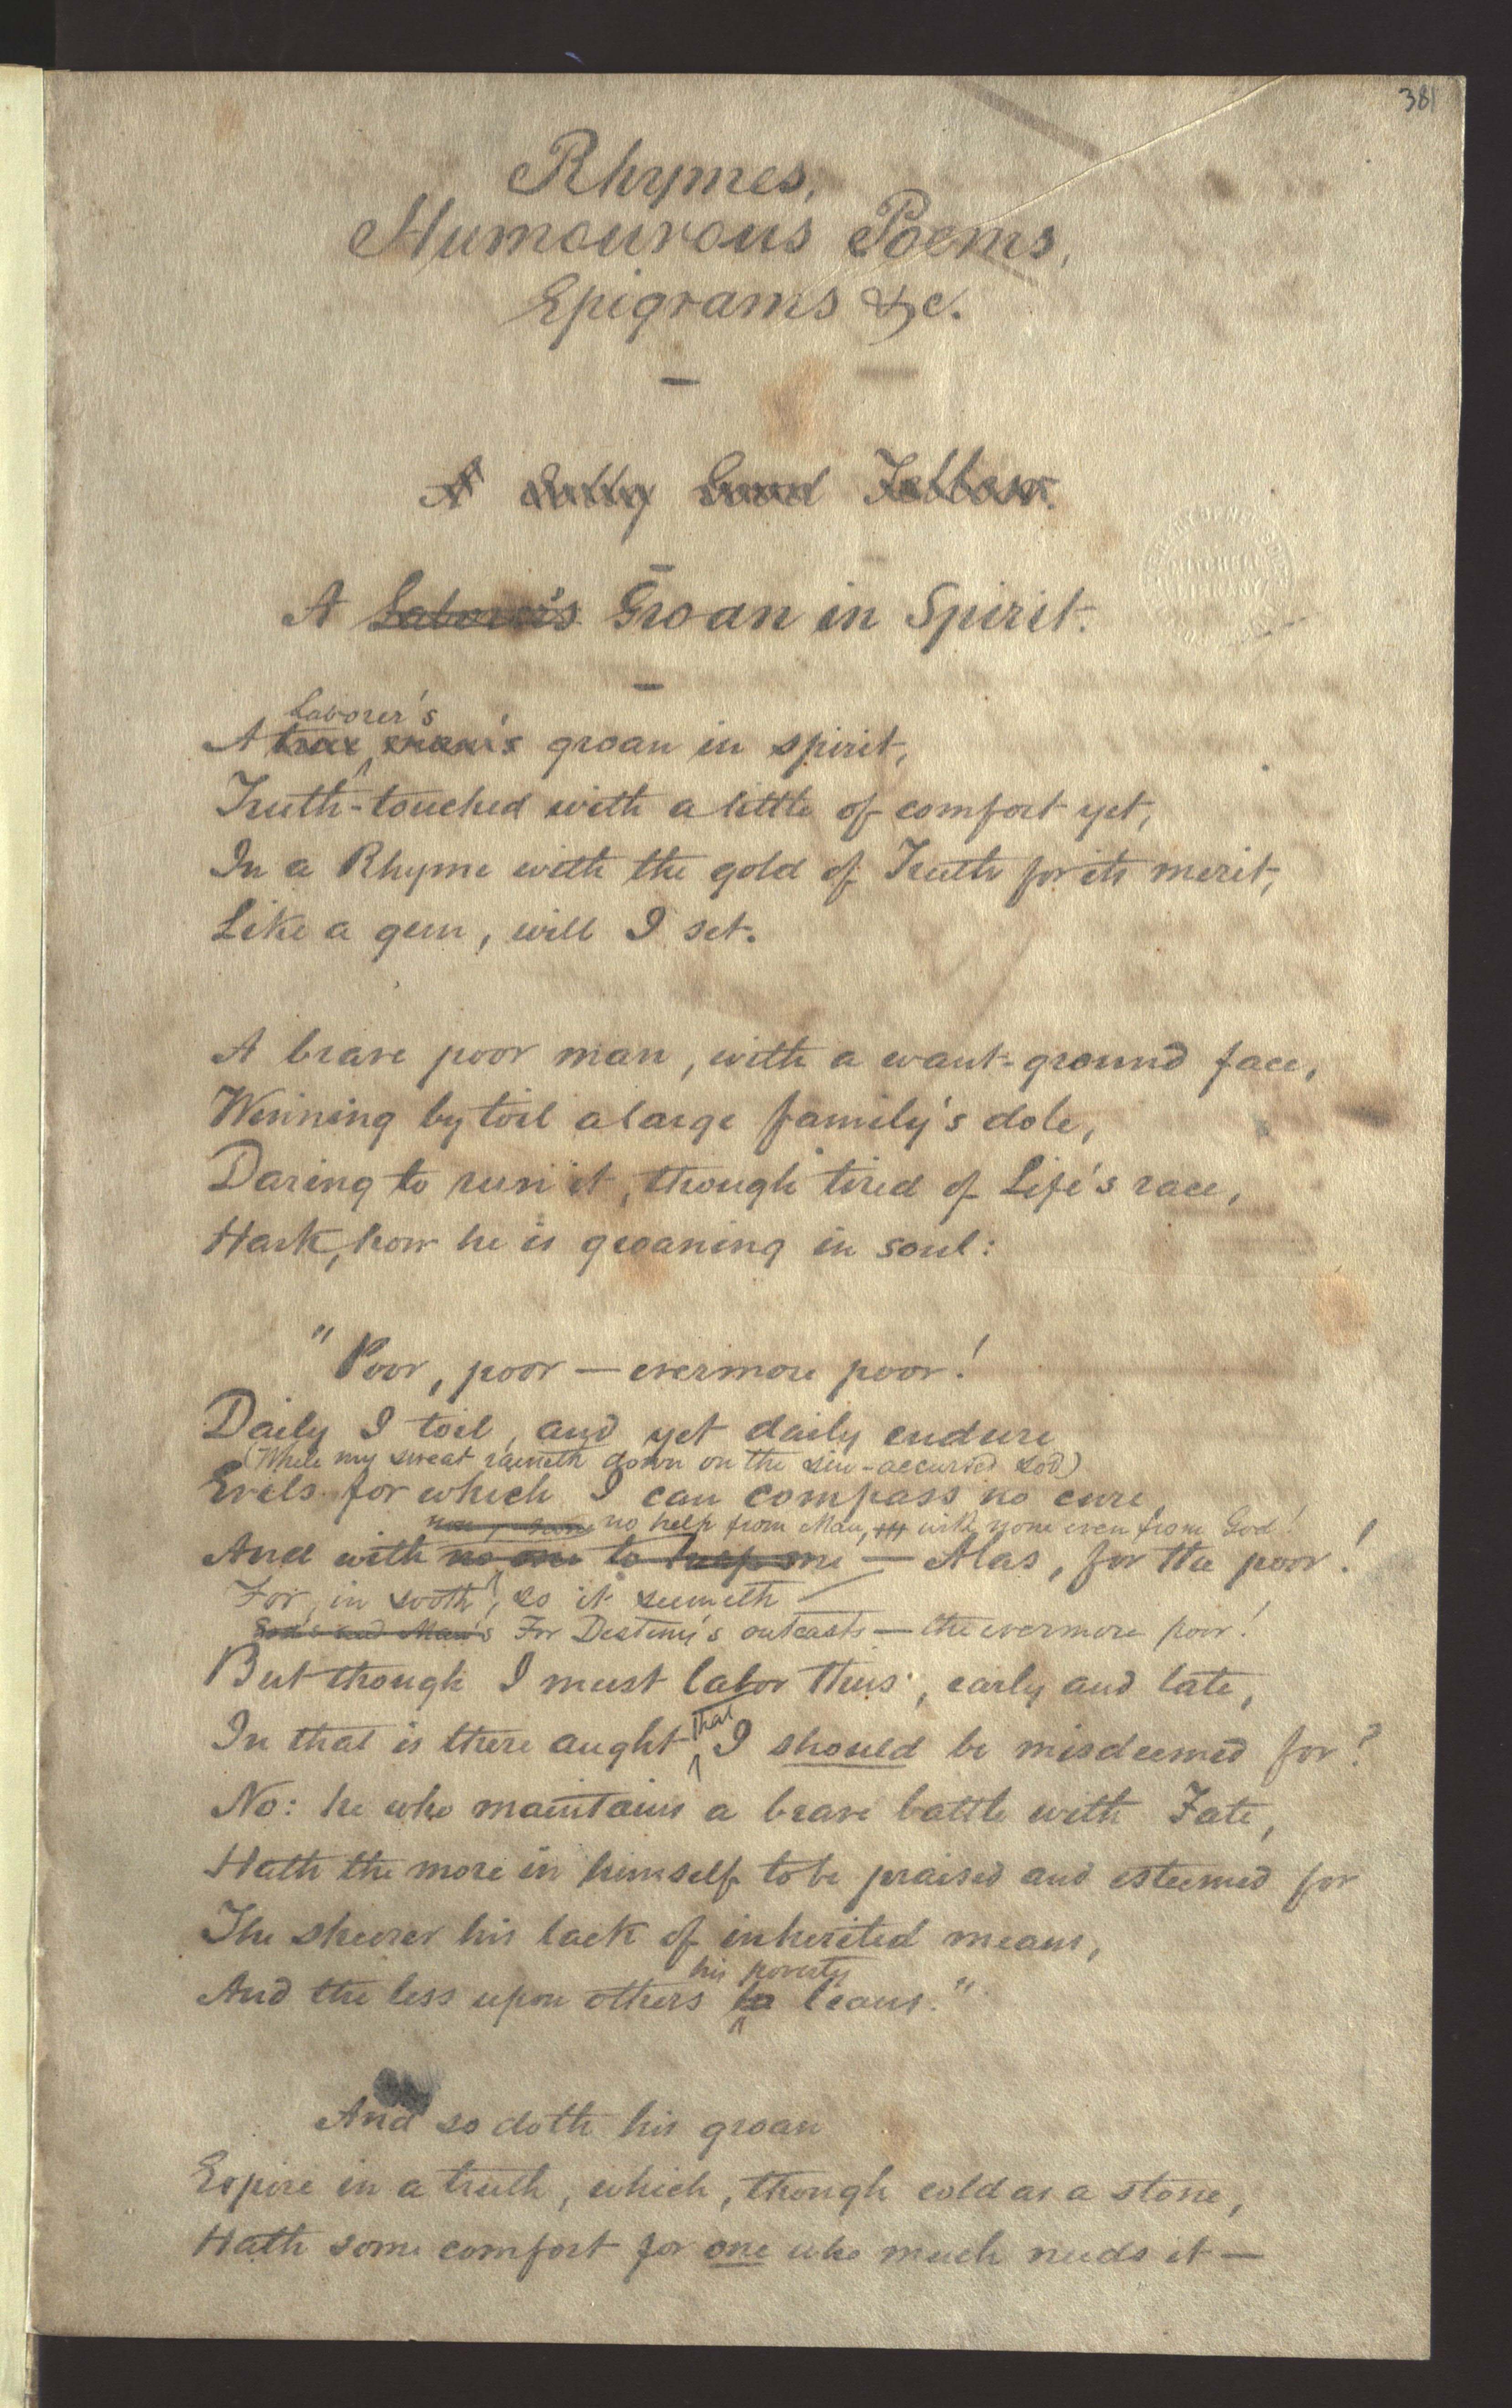 381
Rhymes,
Humourous Poems,
Epigrams &c.
A Good Fellow.
A Laborer's Groan in Spirit.
Laborer's
A true man's groan in spirit,
Truth-touched with a little of comfort yet,
In a Rhyme with the gold of Truth for its merit,
Like a gem, will I set.
A brave poor man, with a want-ground face,
Winning by toil a large family's dole,
Daring to run it, though tired of Life's race,
Hark, how he is groaning in soul:
"Poor, poor — evermore poor!
Daily I toil, and yet daily endure
(While my sweat raineth down on the sin-accursed sod)
Evils for which I can compass no cure,
no help from Man, with none even from God!
And with no one to help me — Alas, for the poor!
For, in sooth, so it seemeth —
God's and Man's For Destiny's outcasts — the evermore poor!
But though I must labor thus, early and late,
In that is there aught that I should be misdeemed for?
No: he who maintains a brave battle with Fate,
Hath the more in himself to be praised and esteemed for
The sheerer his lack of inherited means,
his poverty
And the less upon others he leans."
And so doth his groan
Expire in a truth, which, though cold as a stone,
Hath some comfort for one who much needs it —